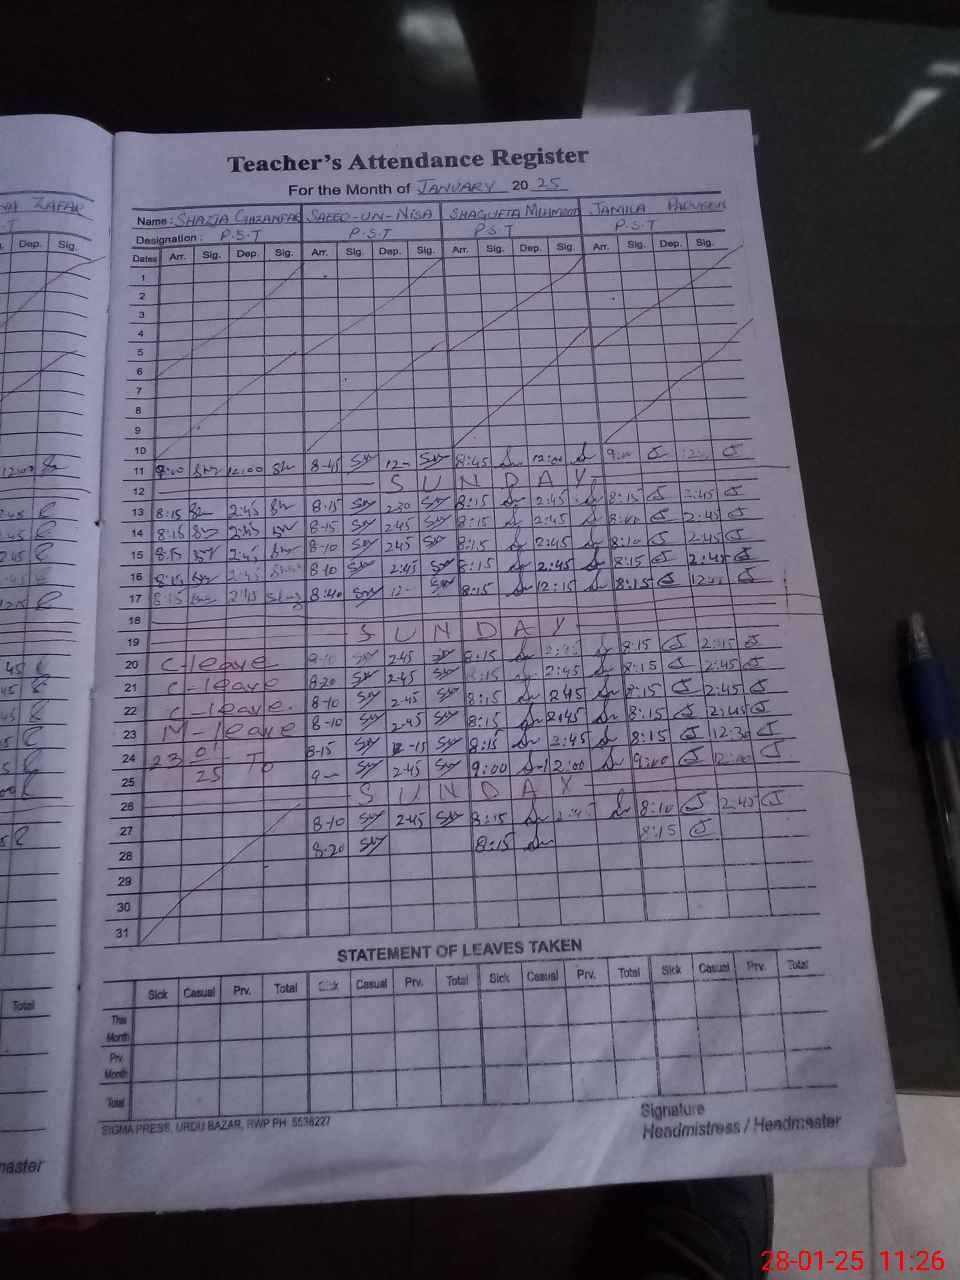 Teacher's Attendance Register
For the Month of JANUARY 2025
ZAFAR
Name: SHAZIA GHZANFAR SAEED-UN-NISA SHAGUFTA JAMILA PARVEEN
Designation: P.S.T P.S.T P.S.T P.S.T
Dep. Sig. Dates Arr. Sig. Dep. Sig. Arr. Sig. Dep. Sig. Arr. Sig. Dep. Sig. Arr. Sig. Dep. Sig.
1
2
3
4
5
6
7
8
9
10
11 12:00 8-45 12- 8:45 12:00 9:00
12 SUNDAY
13 8:15 2:45 8-15 2-30 8:15 2:45 8:15 2:45
14 8:15 2:45 8-15 2-45 8:15 2:45 8:10 2:45
15 8:15 2:45 8-10 2-45 8:15 2:45 8:10 2:45
16 8:15 2:45 8-10 2:45 8:15 2:45 8:15 2:45
17 8:15 2:15 8:40 12- 8:15 12:15 8:15 12:00
18
19 SUNDAY
20 C-leave 2-45 8:15 2:45 8:15 2:45
21 C-leave 8-20 2-45 8:15 2:45 8:15 2:45
22 C-leave. 8-10 2-45 8:15 2:45 8:15 2:45
23 M-leave 8-10 2-45 8:15 2:45 8:15 2:45
24 23 01/25 To 8-15 8:15 8:15 12:30
25 9- 2-45 9:00 12:00 9:00 12:00
26 SUNDAY
27 8-10 2-45 8:15 2:45 8:10 2:45
28 8-20 8:15 8:15
29
30
31
STATEMENT OF LEAVES TAKEN
Total Sick Casual Prv. Total Sick Casual Prv. Total Sick Casual Prv. Total Sick Casual Prv. Total
This Month
Prv. Month
Total
SIGMA PRESS, URDU BAZAR, RWP PH: 5536227
Signature
Headmistress / Headmaster
master
28-01-25 11:26